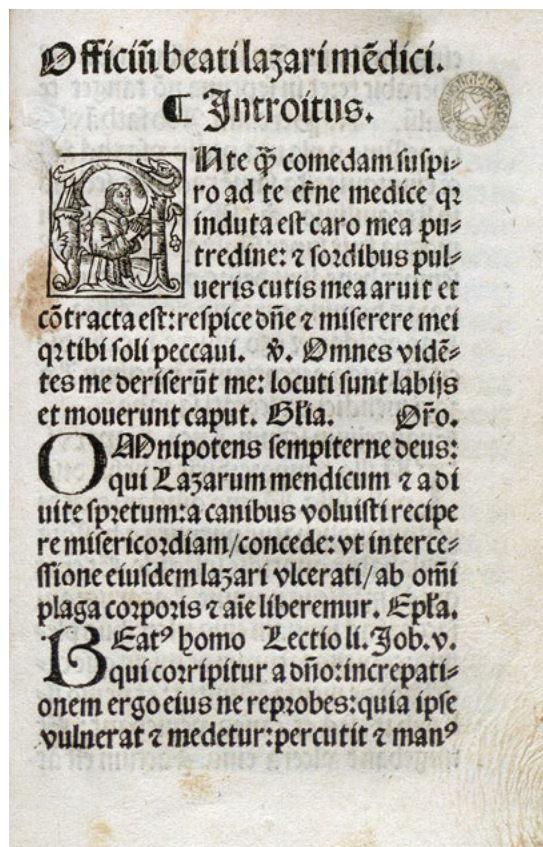 Officiū beati lazari mēdici.
¶ Introitus.
ANte q̄ꝫ comedam suspi⸗
ro ad te et̄ne medice qꝛ
induta est caro mea pu⸗
tredine: ⁊ sordibus pul⸗
ueris cutis mea aruit et
cōtracta est: respice dn̄e ⁊ miserere mei
qꝛ tibi soli peccaui. ℣. Omnes vidē⸗
tes me deriserūt me: locuti sunt labijs
et mouerunt caput. Gl̄ia. Or̄o.
OMnipotens sempiterne deus:
qui Lazarum mendicum ⁊ a di
uite spretum: a canibus voluisti recipe
re misericordiam/concede: vt interce⸗
ssione eiusdem lazari vlcerati/ab om̄i
plaga corporis ⁊ aīe liberemur. Epl̄a.
BEatꝰ homo Lectio li. Job. v.
qui corripitur a dn̄o: increpati⸗
onem ergo eius ne reprobes: quia ipse
vulnerat ⁊ medetur: percutit ⁊ manꝰ